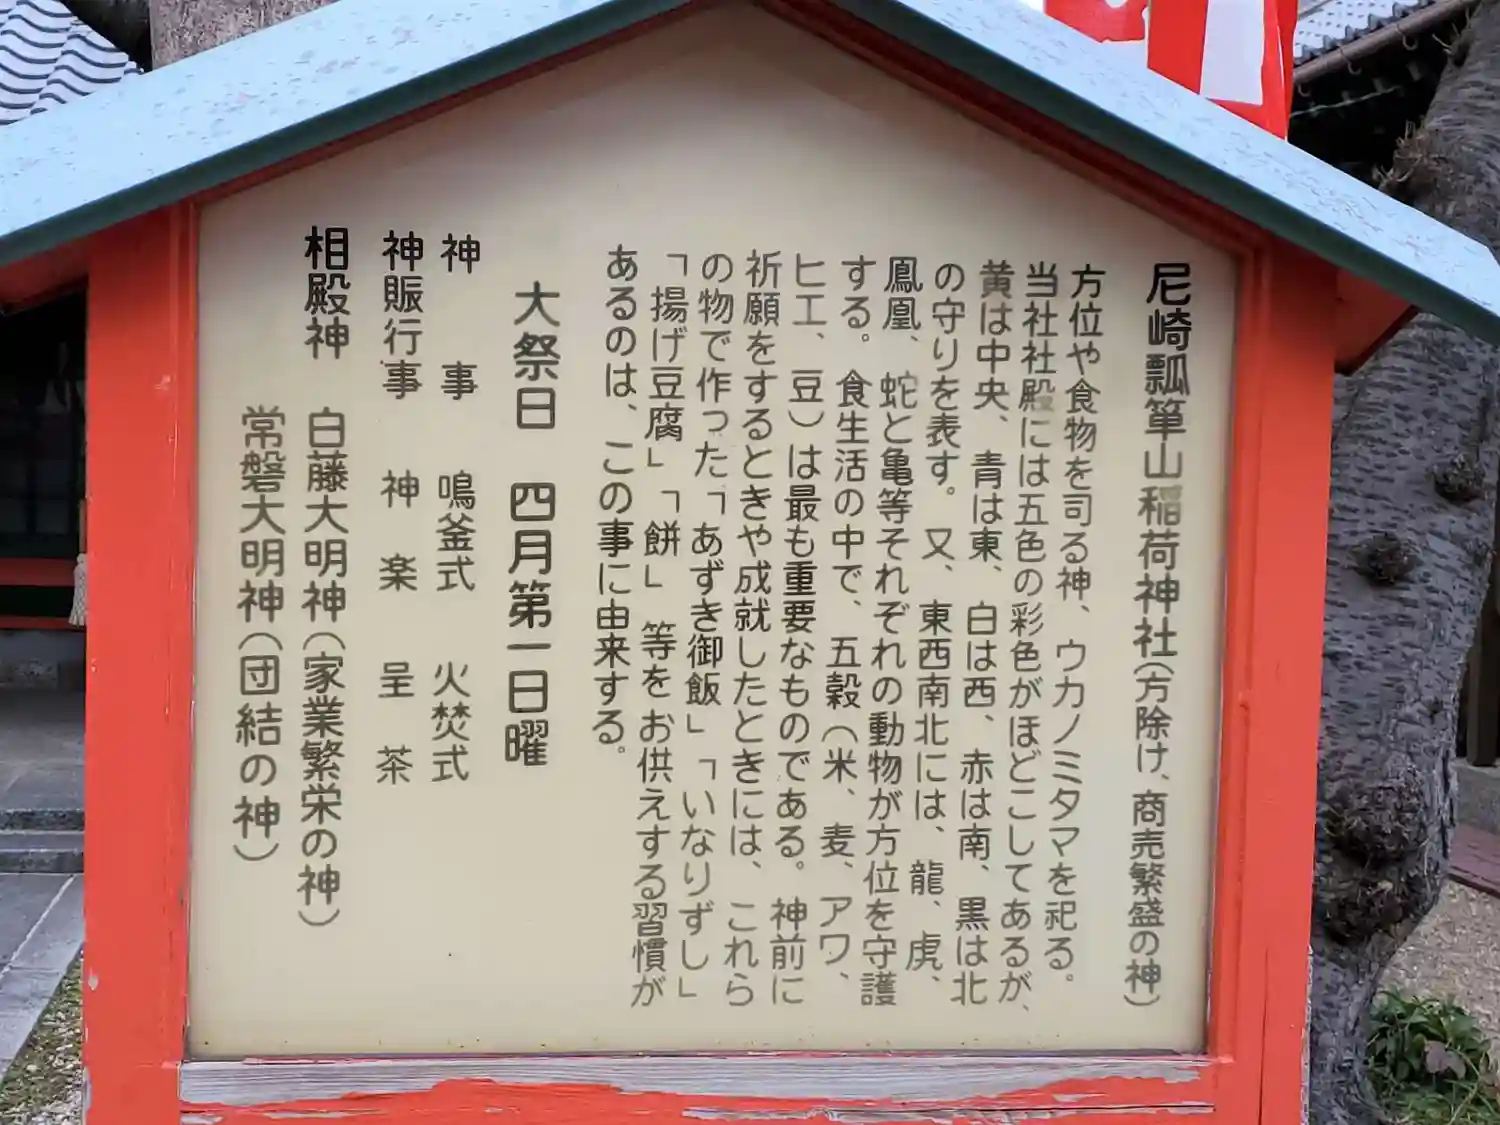 尼崎瓢箪山稲荷神社（方除け、商売繁盛の神）
方位や食物を司る神、ウカノミタマを祀る。
当社社殿には五色の彩色がほどこしてあるが、
黄は中央、青は東、白は西、赤は南、黒は北
の守りを表す。又、東西南北には、龍、虎、
鳳凰、蛇と亀等それぞれの動物が方位を守護
する。食生活の中で、五穀（米、麦、アワ、
ヒエ、豆）は最も重要なものである。神前に
祈願をするときや成就したときには、これら
の物で作った「あずき御飯」「いなりずし」
「揚げ豆腐」「餅」等をお供えする習慣が
あるのは、この事に由来する。
大祭日 四月第一日曜
神事 鳴釜式 火焚式
神賑行事 神楽 呈茶
相殿神 白藤大明神（家業繁栄の神）
常磐大明神（団結の神）